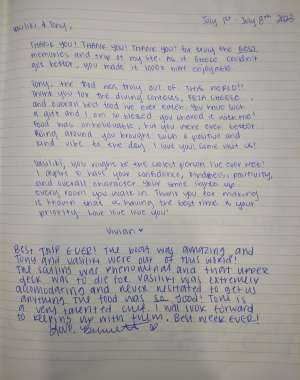 Vasiliki & Tony,
July 1st - July 8th 2023
THANK YOU! THANK YOU! THANK YOU! for truly the BEST
memories and trip of my life. As if Greece couldn't
get better, you made it 100x more enjoyable.
Tony, the food was truly out of THIS WORLD!!
Thank you for the dining contests, FETA CHEESE,
and overall best food I've ever eaten. You have such
a gift and I am so blessed you shared it with me!
Food was unbelievable, but you were even better.
Being around you brought such a positive and
kind vibe to the day. I love you! Come visit us!
Vasiliki, you might be the coolest person I've ever met!
I aspire to have your confidence, kindness, positivity,
and overall character. Your smile lights up
every room you walk in. Thank you for making
it known that us having the best time is your
priority. Love love love you!
Vivian
BEST TRIP EVER! The boat was amazing and
Tony and Vasiliki were out of this world!
The sailing was phenomenal and that upper
deck was to die for. Vasiliki was extremely
accomodating and never hesitated to get us
anything. The food was so good! Tony is
a very talented chef. I will look forward
to keeping up with them. Best week EVER!